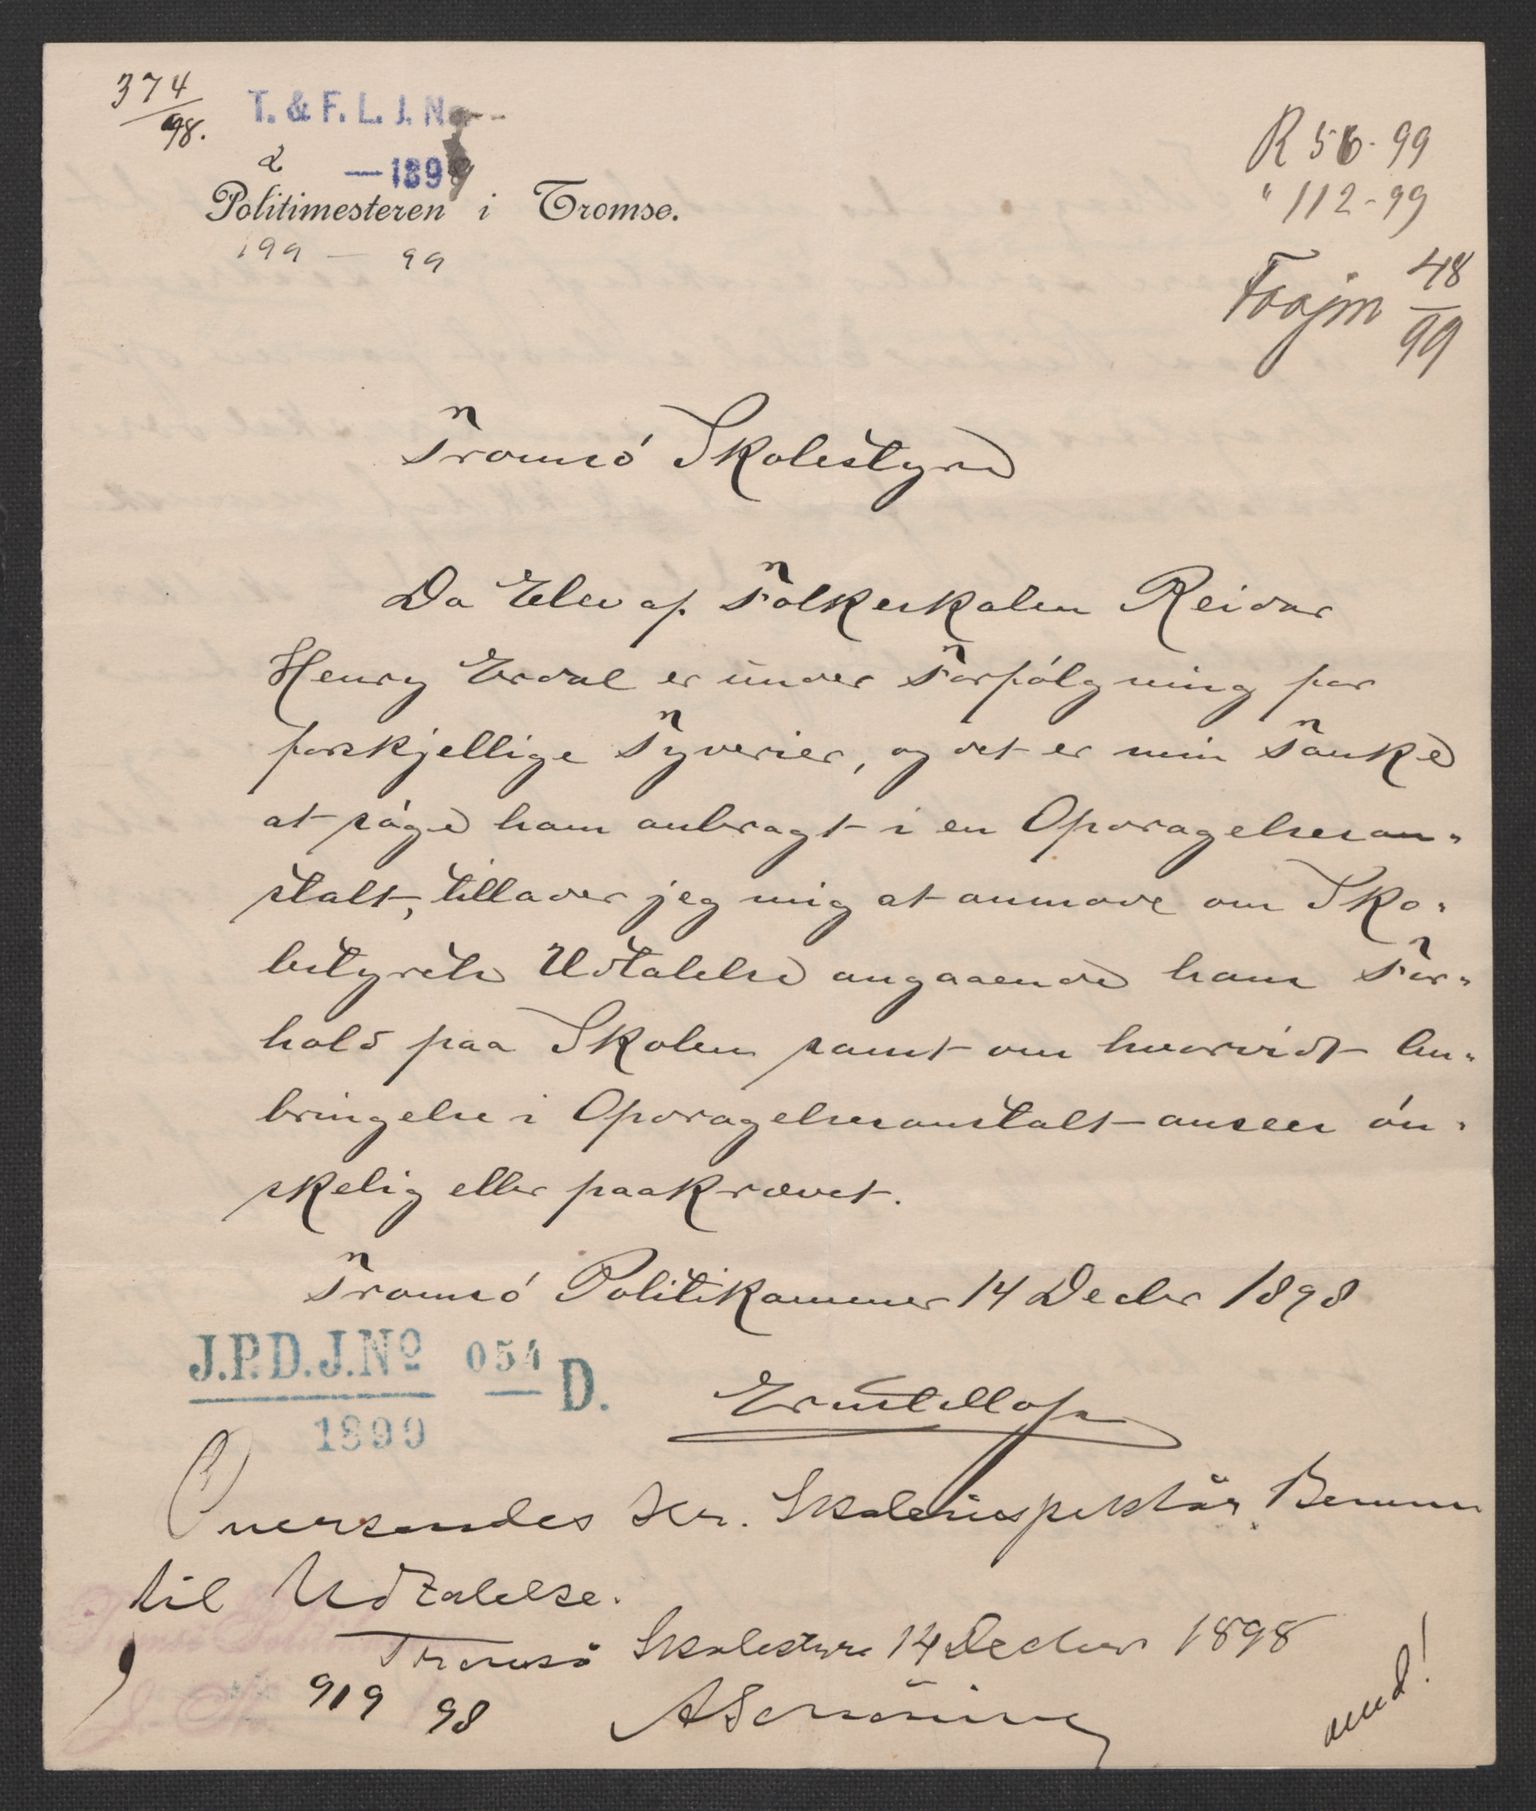 374
98.
T. & F. L. J. No
2 — 1899
Politimesteren i Tromsø.
199 — 99
R 56 - 99
" 112 - 99
48
99
Tromsø Skolestyre
Da Elev af Folkeskolen Reidar
Henry Erdal er under Forfølgning for
forskjellige Tyverier, og det er min Tanke
at søge ham anbragt i en Opdragelsesan-
stalt, tillader jeg mig at anmode om Sko-
lestyrets Udtalelse angaaende hans For-
hold paa Skolen samt om hvorvidt An-
bringelse i Opdragelsesanstalt ansees øn-
skelig eller paakrævet.
Tromsø Politikammer 14 Decbr 1898
J.P.D.J.No 054 D.
1899
Oversendes Hr. Skoleinspektør
til Udtalelse.
Tromsø Skolestyre 14 December 1898
919 98
A Schrøning